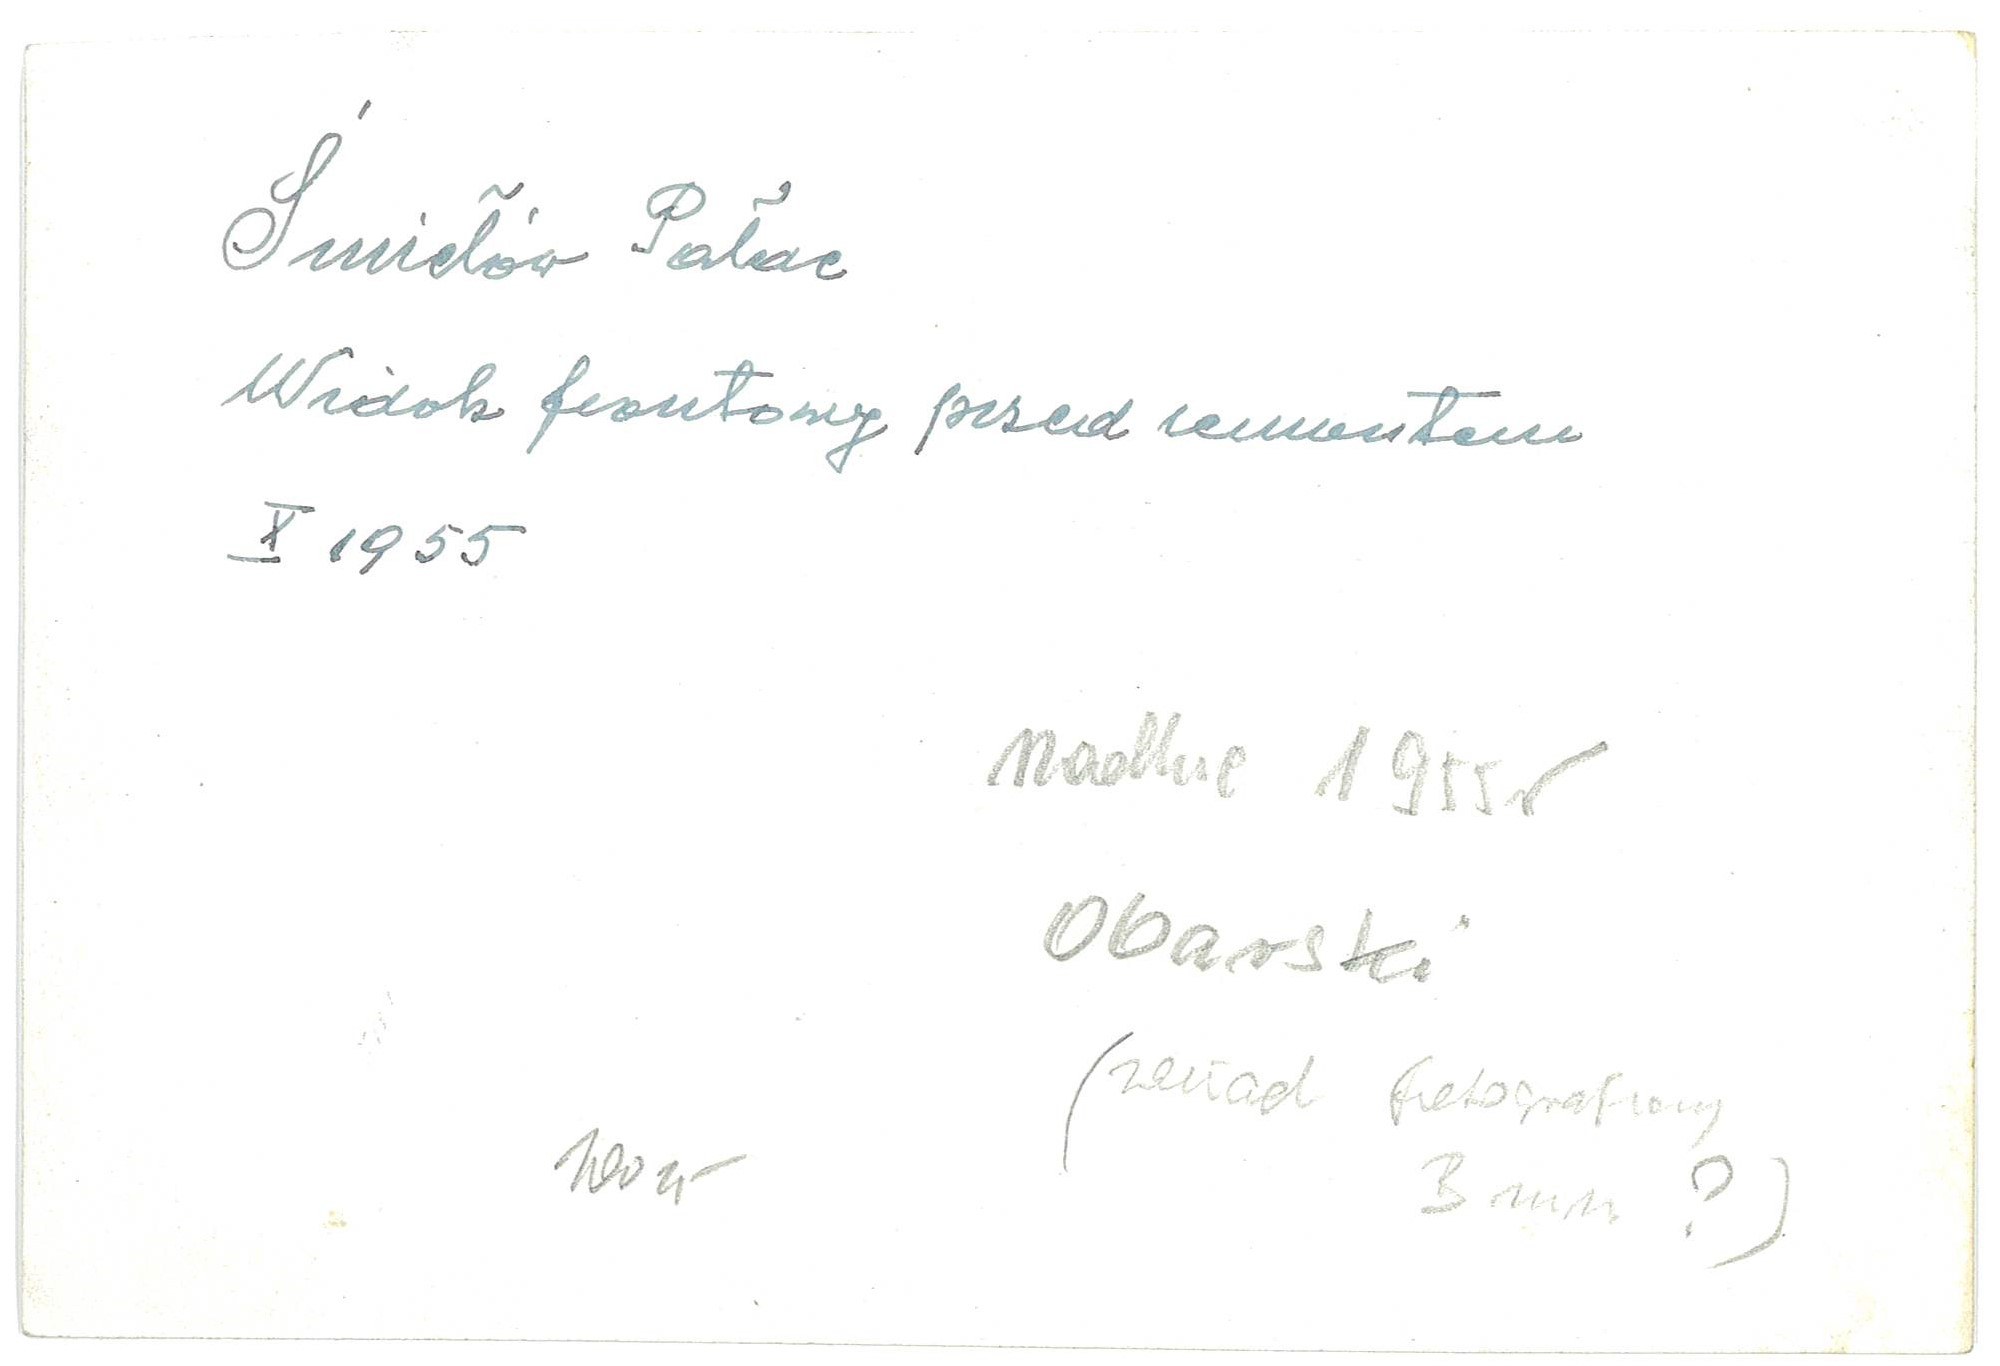 Śmiełów Pałac
Widok frontowy przed remontem
X 1955
1955 r
Obarski
(zakład fotograficzny
?)